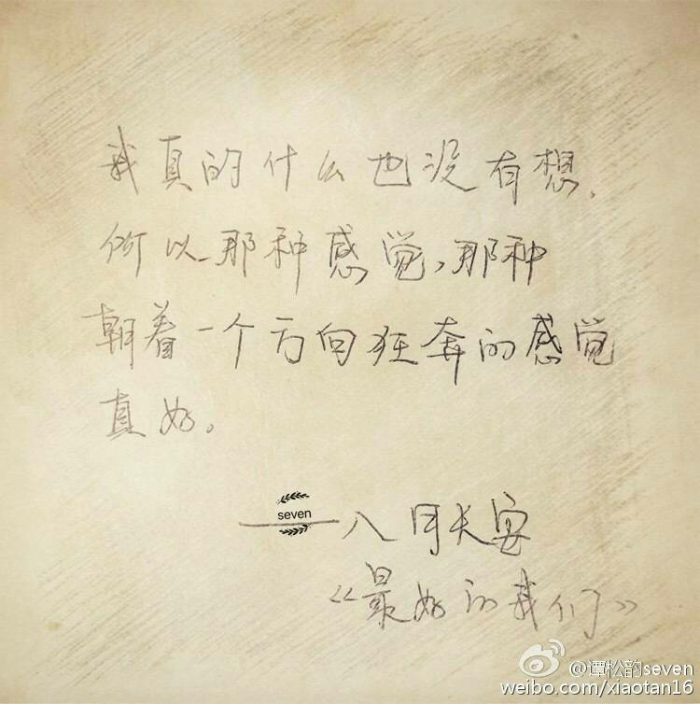 我真的什么也没有想,
所以那种感觉,那种
朝着一个方向狂奔的感觉
真好。
seven
——八月长安
《最好的我们》
@谭松韵seven
weibo.com/xiaotan16